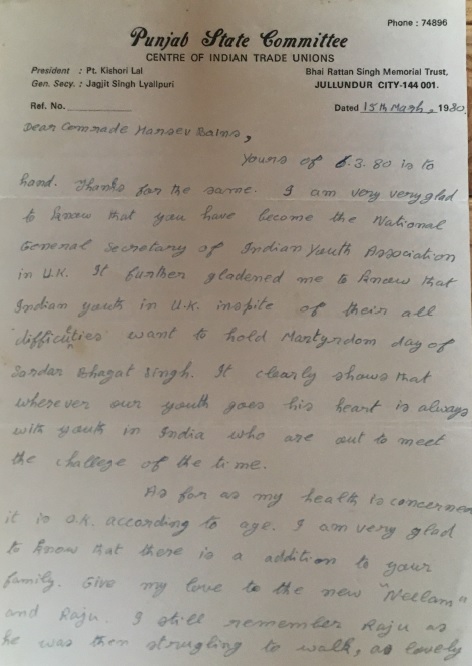 Phone : 74896
Punjab State Committee
CENTRE OF INDIAN TRADE UNIONS
President : Pt. Kishori Lal
Gen. Secy. : Jagjit Singh Lyallpuri
Bhai Rattan Singh Memorial Trust,
JULLUNDUR CITY-144 001.
Ref. No.
Dated 15th March, 1980.
Dear Comrade Harsev Bains,
Yours of 6.3.80 is to
hand. Thanks for the same. I am very very glad
to know that you have become the National
General Secretary of Indian Youth Association
in U.K. It further gladened me to know that
Indian youth in U.K. inspite of their all
difficulties want to hold Martyrdom day of
Sardar Bhagat Singh. It clearly shows that
wherever our youth goes his heart is always
with youth in India who are out to meet
the challege of the time.
As far as my health is concerned
it is o.k. according to age. I am very glad
to know that there is a addition to your
family. Give my love to the new "Neelam"
and Raju. I still remember Raju as
he was then struggling to walk, as lovely